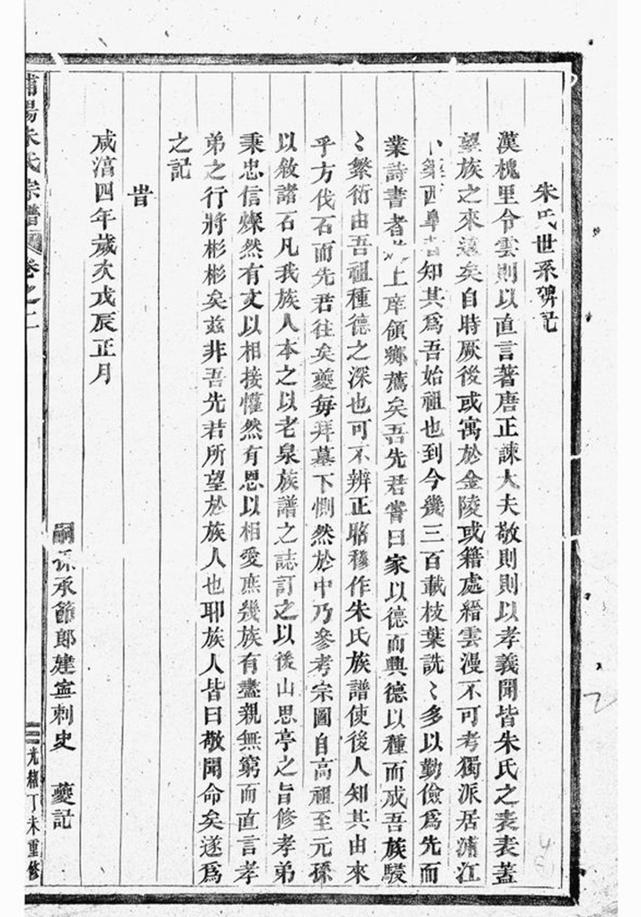 朱氏世系碑記
漢槐里令雲則以直言著唐正諫大夫敬則則以孝義開皆朱氏之表表蓋
望族之來遠矣自時厥後或寓於金陵或籍處縉雲漫不可考獨派居浦江
卜築西皐者知其為吾始祖也到今幾三百載枝葉詵〻多以勤儉為先而
業詩書者上庠領鄉薦矣吾先君嘗曰家以德而興德以種而成吾族駸
〻繁衍由吾祖種德之深也可不辨正昭穆作朱氏族譜使後人知其由來
乎方伐石而先君往矣夔每拜墓下惻然於中乃參考宗圖自高祖至元孫
以敘諸石凡我族人本之以老泉族譜之誌訂之以後山思亭之旨修孝弟
秉忠信燦然有文以相接懽然有恩以相愛庶幾族有盡親無窮而直言孝
弟之行將彬彬矣茲非吾先君所望於族人也耶族人皆曰敬聞命矣遂為
之記
旹
咸淳四年歲次戊辰正月
嗣孫承節郎建寧刺史 夔記
浦陽朱氏宗譜 卷之二
光緒丁未重修